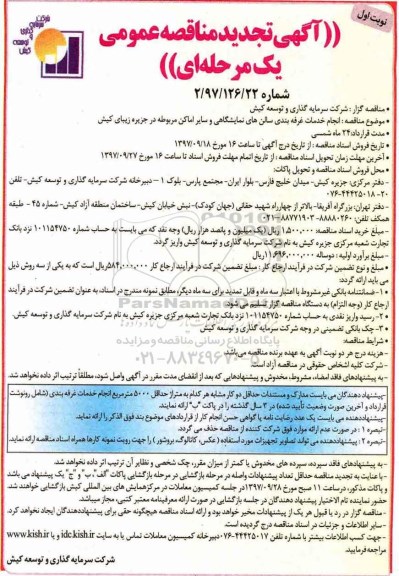 نوبت اول
شرکت سرمایه گذاری و توسعه کیش
((آگهی تجدید مناقصه عمومی
یک مرحله‌ای))
شماره ۲/۹۷/۱۲۶/۲۲
• مناقصه گزار : شرکت سرمایه گذاری و توسعه کیش
• موضوع مناقصه : انجام خدمات غرفه بندی سالن های نمایشگاهی و سایر اماکن مربوطه در جزیره زیبای کیش
• مدت قرارداد: ۲۴ ماه شمسی
• تاریخ فروش اسناد مناقصه : از تاریخ درج آگهی تا ساعت ۱۶ مورخ ۱۳۹۷/۰۹/۱۸
• آخرین مهلت زمان تحویل اسناد مناقصه : از تاریخ اتمام مهلت فروش اسناد تا ساعت ۱۶ مورخ ۱۳۹۷/۰۹/۲۷
• محل فروش اسناد مناقصه و تحویل پاکات:
- دفتر مرکزی: جزیره کیش- میدان خلیج فارس- بلوار ایران- مجتمع پارس- بلوک ۱ - دبیرخانه شرکت سرمایه گذاری و توسعه کیش- تلفن
۰۷۶-۴۴۴۲۵۰۱۸-۲۰
- دفتر تهران: بزرگراه آفریقا- بالاتر از چهارراه شهید حقانی (جهان کودک)- نبش خیابان کیش- ساختمان منطقه آزاد کیش- شماره ۴۵ - طبقه
همکف تلفن: ۸۸۸۸۰۲۶۰-۸۸۷۷۱۹۰۳-۰۲۱
- مبلغ خرید اسناد مناقصه: ۱,۵۰۰,۰۰۰ ریال (یک میلیون و پانصد هزار ریال) وجه نقد که می بایست به حساب شماره ۱۰۱۱۵۴۷۵۰ نزد بانک
تجارت شعبه مرکزی جزیره کیش به نام شرکت سرمایه گذاری و توسعه کیش واریز گردد.
- مبلغ برآورد اولیه : دوساله ۱۱,۶۹۶,۰۰۰,۰۰۰ ریال
• مبلغ و نوع تضمین شرکت در فرآیند ارجاع کار : مبلغ تضمین شرکت در فرآیند ارجاع کار ۵۸۴,۰۰۰,۰۰۰ ریال است که به یکی از سه روش ذیل
می باید ارائه گردد:
۱- ضمانتنامه بانکی غیرمشروط با اعتبار سه ماه و قابل تمدید برای سه ماه دیگر، مطابق نمونه مندرج در اسناد، به عنوان تضمین شرکت در فرآیند
ارجاع کار (وجه التزام) به دستگاه مناقصه گزار تسلیم می شود.
۲- رسید واریز نقدی به حساب شماره ۱۰۱۱۵۴۷۵۰ نزد بانک تجارت شعبه مرکزی جزیره کیش به نام شرکت سرمایه گذاری و توسعه کیش
۳- چک بانکی تضمینی در وجه شرکت سرمایه گذاری و توسعه کیش
• شرایط مناقصه:
- هزینه درج هر دو نوبت آگهی به عهده برنده مناقصه می باشد.
- شرکت کلیه اشخاص حقوقی در مناقصه آزاد است.
- به پیشنهادهای فاقد امضاء، مشروط، مخدوش و پیشنهادهایی که بعد از انقضای مدت مقرر در آگهی واصل شود، مطلقاً ترتیب اثر داده نخواهد شد.
-پیشنهاد دهندگان می بایست مدارک و مستندات حداقل دو کار مشابه هر کدام به متراژ حداقل ۵۰۰۰ مترمربع انجام خدمات غرفه بندی (شامل رونوشت
قرارداد و آخرین صورت وضعیت تأیید شده) در ۳ سال گذشته را در پاکت "ب" ارائه نمایند.
-پیشنهاد دهنده می بایست یک عدد رضایت نامه یا گواهی حسن انجام کار از قراردادهای موضوع بند فوق الذکر را ارائه نماید.
-تبصره ۱ : در صورت عدم ارائه موارد فوق شرکت کننده از مناقصه حذف می گردد.
-تبصره ۲ : پیشنهاددهنده می تواند تصاویر تجهیزات مورد استفاده (عکس، کاتالوگ، بروشور) را جهت رویت نمونه کارها همراه اسناد مناقصه ارائه نماید.
- به پیشنهادهای فاقد سپرده، سپرده های مخدوش یا کمتر از میزان مقرر، چک شخصی و نظایر آن ترتیب اثر داده نخواهد شد.
- با عنایت به تجدید مناقصه حداقل تعداد پیشنهادات واصله در مرحله بازگشایی در مرحله بازگشایی پاکات "الف"، "ب" و "ج" یک پیشنهاد می باشد
و پاکات مذکور، درساعت ۱۱ صبح مورخ ۱۳۹۷/۰۹/۲۸ در جلسه کمیسیون معاملات در مرکز همایش های بین المللی کیش بازگشایی خواهند شد و
حضور نماینده تام الاختیار پیشنهاد دهندگان در جلسه بازگشایی در صورت ارائه معرفینامه معتبر کتبی، مجاز میباشد.
- مناقصه گزار در رد یا قبول هر یک از پیشنهادات مخیر خواهد بود و ارائه اسناد مناقصه هیچگونه حقی برای پیشنهاددهندگان ایجاد نخواهد کرد.
- سایر اطلاعات و جزئیات در اسناد مناقصه درج گردیده است.
- جهت کسب اطلاعات بیشتر با شماره تلفن ۴۴۴۲۵۰۱۷-۰۷۶ دبیرخانه کمیسیون معاملات تماس یا به سایت idc.kish.ir و یا www.kish.ir
مراجعه فرمایید.
شرکت سرمایه گذاری و توسعه کیش
پایگاه اطلاع رسانی مناقصه و مزایده
۰۲۱-۸۸۳۴۹۶۷۰